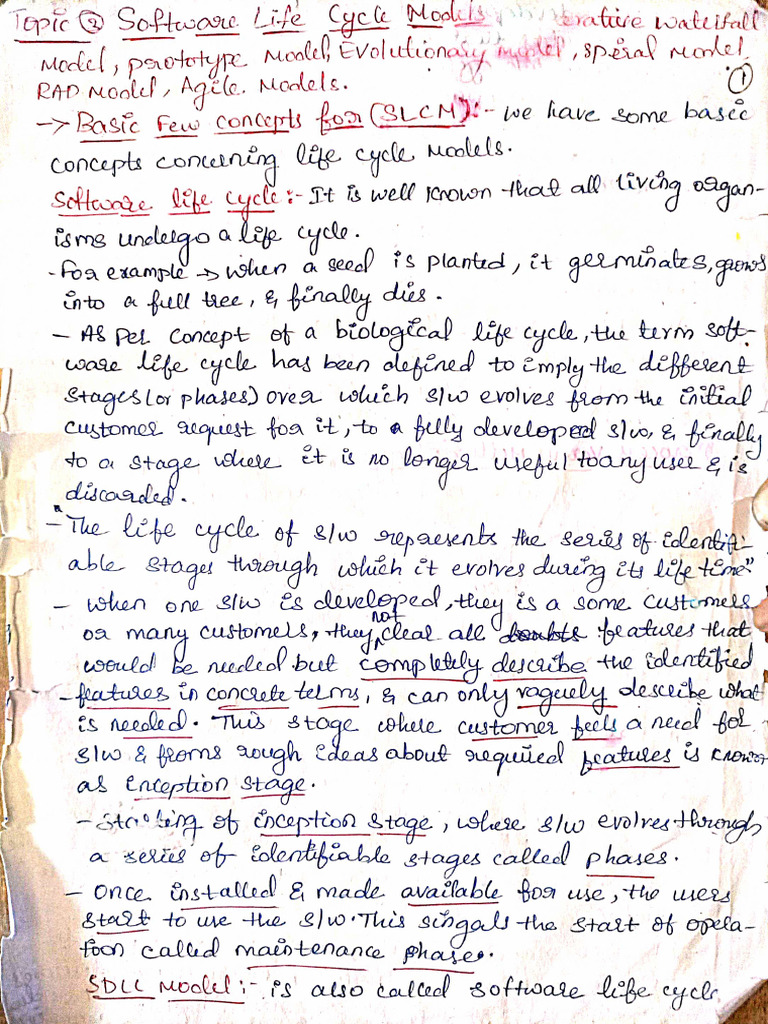 Topic ② Software Life Cycle Models erative waterfall
Model, prototype Model, Evolutionary model, speral model
RAD Model, Agile Models.
①
→ Basic Few concepts for (SLCM):- we have some basic
concepts concerning life cycle Models.
Software life cycle:- It is well known that all living organ-
isms undergo a life cycle.
- for example → when a seed is planted, it germinates, grows
into a full tree, & finally dies.
- As per concept of a biological life cycle, the term soft-
ware life cycle has been defined to imply the different
stages (or phases) over which s/w evolves from the initial
customer request for it, to a fully developed s/w, & finally
to a stage where it is no longer useful to any user & is
discarded.
- "The life cycle of s/w represents the series of identifi-
able stages through which it evolves during its life time"
- when one s/w is developed, they is a some customers
or many customers, they not clear all doubts features that
would be needed but completely describe the identified
- features in concrete terms, & can only vaguely describe what
is needed. This stage where customer feels a need for
s/w & froms rough ideas about required features is known
as inception stage.
- Starting of inception stage, where s/w evolves through
a series of identifiable stages called phases.
- Once installed & made available for use, the users
start to use the s/w. This singals the start of opera-
tion called maintenance phase.
SDLC Model:- is also called software life cycle